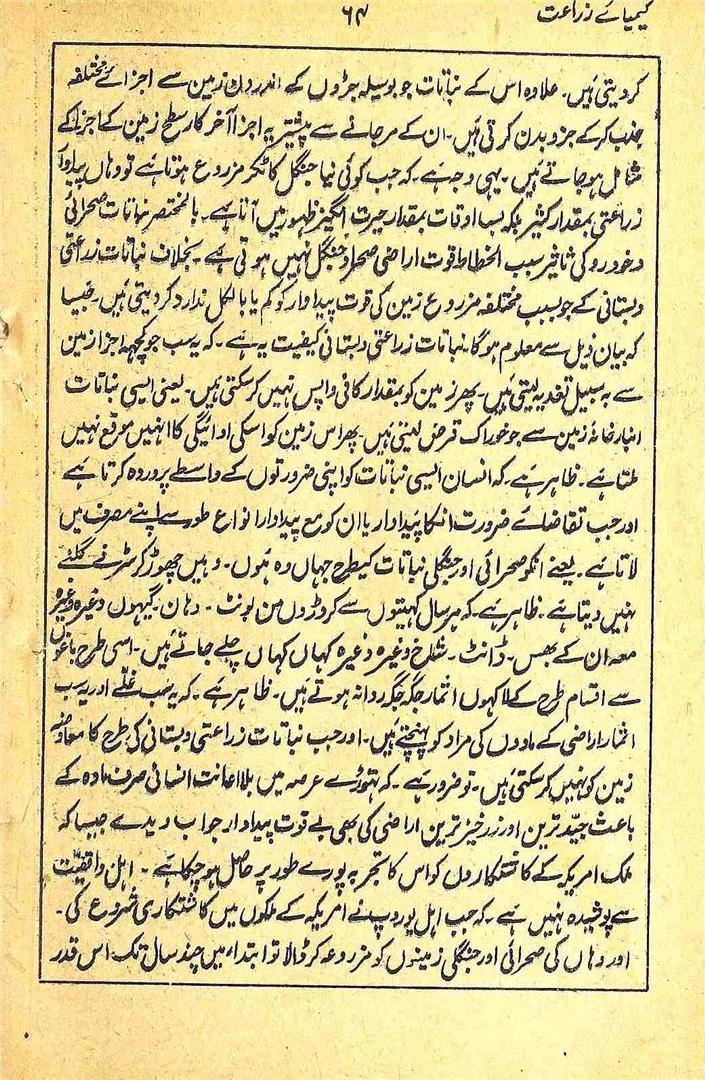 کیمیائے زراعت ۶۴
کردیتی ہیں۔ علاوہ اس کے نباتات جو بوسیلہ جڑوں کے اندرون زمین سے اجزائے مختلفہ
جذب کرکے جزو بدن کرتی ہیں۔ ان کے مرجانے سے پیشتر یہ اجزا آخرکار سطح زمین کے اجزا کے
شامل ہوجاتے ہیں۔ یہی وجہ ہے۔ کہ جب کوئی نیا جنگل کاٹکر مزروع ہوتا ہے تو وہاں پیداوار
زراعتی بمقدار کثیر بلکہ بسا اوقات بمقدار حیرت انگیز ظہور میں آتا ہے۔ بالمختصر نباتات صحرائی
و خودرو کی تاثیر سبب انحطاط قوت اراضی صحرا و جنگل نہیں ہوتی ہے۔ بخلاف نباتات زراعتی
و بستانی کے جو بسبب مختلفہ مزروع زمین کی قوت پیداوار کو کم یا بالکل ندارد کردیتی ہیں۔ جیسا
کہ بیان ذیل سے معلوم ہوگا۔ نباتات زراعتی و بستانی کیفیت یہ ہے۔ کہ یہ سب جو کچھہ اجزا زمین
سے بہ سبیل تغذیہ لیتی ہیں۔ پھر زمین کو بمقدار کافی واپس نہیں کرسکتی ہیں۔ یعنی ایسی نباتات
انبارخانۂ زمین سے جو خوراک قرض لیتی ہیں۔ پھر اس زمین کو اسکی ادائیگی کا انہیں موقع نہیں
ملتا ہے۔ ظاہر ہے۔ کہ انسان ایسی نباتات کو اپنی ضرورتوں کے واسطے پروردہ کرتا ہے
اور جب تقاضائے ضرورت انکا پیداوار یا ان کو مع پیداوار انواع طور سے اپنے مصرف میں
لاتا ہے۔ یعنے انکو صحرائی اور جنگلی نباتات کیطرح جہاں وہ ہوں۔ وہیں چھوڑ کر سڑنے گلنے
نہیں دیتا ہے۔ ظاہر ہے۔ کہ ہر سال کھیتوں سے کروڑوں من بونٹ۔ دہان۔ گیہوں وغیرہ وغیرہ
معہ ان کے بھس۔ ڈانٹ۔ شلخ وغیرہ وغیرہ کہاں کہاں چلے جاتے ہیں۔ اسی طرح باغوں
سے اقسام طرح کے لاکھوں اثمار جگہ جگہ روانہ ہوتے ہیں۔ ظاہر ہے۔ کہ یہ سب غلّے اور یہ سب
اثمار اراضی کے مادوں کی مراد کو پہنچتے ہیں۔ اور جب نباتات زراعتی و بستانی کی طرح کا معاوضہ
زمین کو نہیں کرسکتی ہیں۔ تو ضرور ہے۔ کہ تہوڑے عرصہ میں بلا اعانت انسانی صرف مادہ کے
باعث جیّد ترین اور زرخیز ترین اراضی کی بھی بے قوت پیداوار جواب دیدے جیسا کہ
ملک امریکہ کے کاشتکاروں کو اس کا تجربہ پورے طور پر حاصل ہوچکا ہے۔ اہل واقفیت
سے پوشیدہ نہیں ہے۔ کہ جب اہل یوروپ نے امریکہ کے ملکوں میں کاشتکاری شروع کی۔
اور وہاں کی صحرائی اور جنگلی زمینوں کو مزروعہ کرڈالا تو ابتداء میں چند سال تک اس قدر